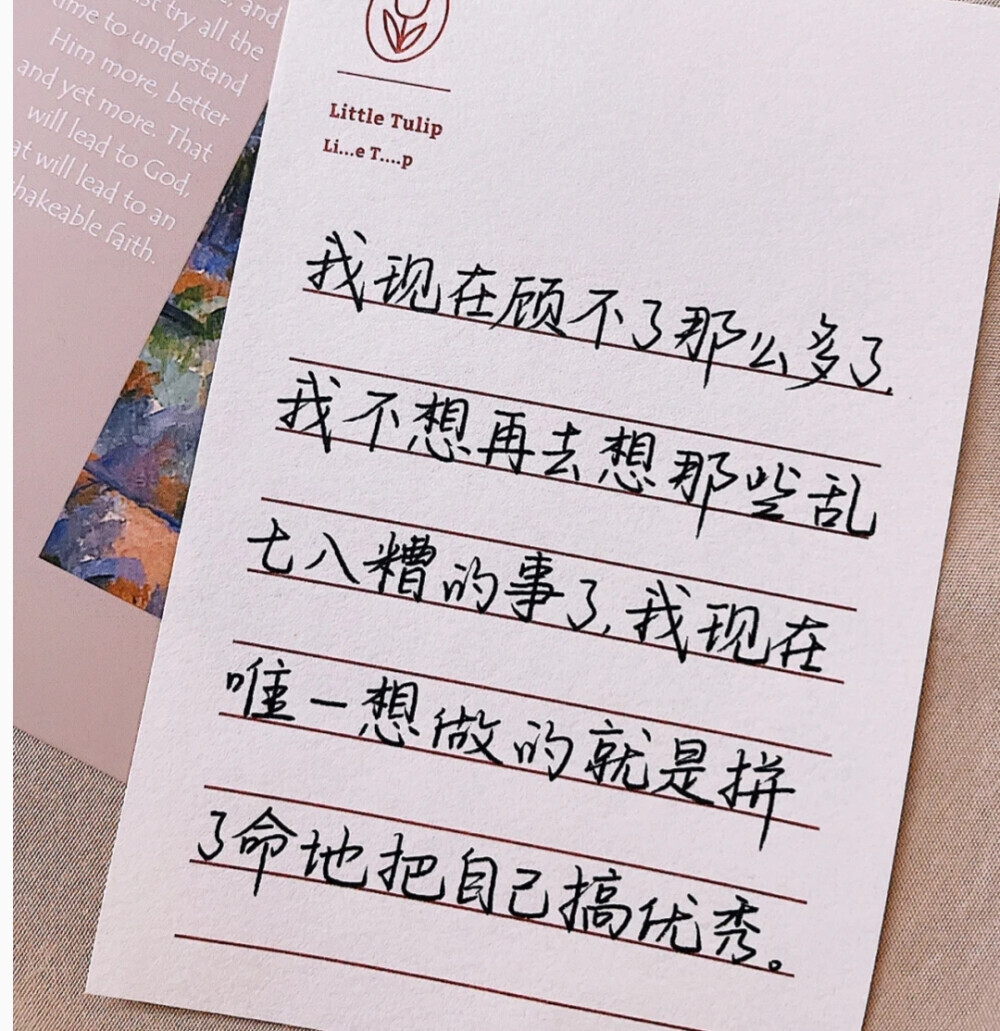 try all the
time to understand
Him more, better
and yet more. That
will lead to God,
will lead to an
faith.
Little Tulip
Li...e T....p
我现在顾不了那么多了,
我不想再去想那些乱
七八糟的事了,我现在
唯一想做的就是拼
了命地把自己搞优秀。